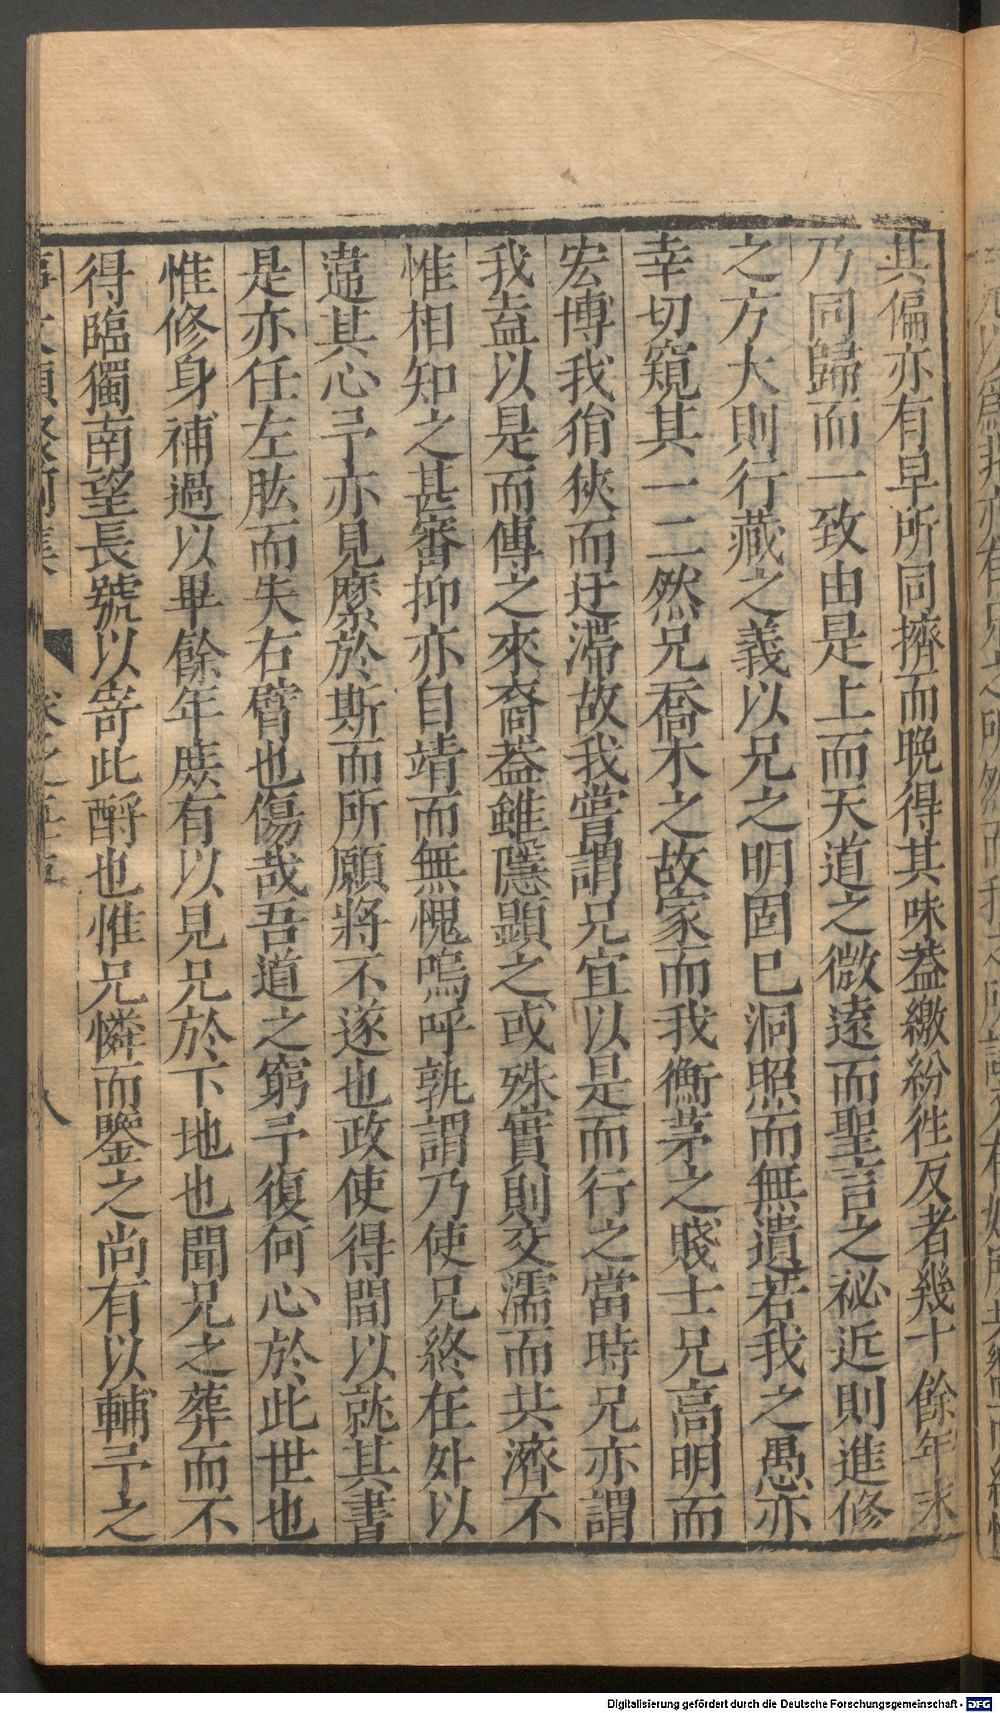 其偏亦有早所同擠而晚得其味葢繳紛徃反者幾十餘年末
乃同歸而一致由是上而天道之微遠而聖言之祕近則進修
之方大則行藏之義以兄之明固已洞照而無遺若我之愚亦
幸切窺其一二然兄喬木之故家而我衡茅之賤士兄高明而
宏博我狷狹而迂滯故我嘗謂兄宜以是而行之當時兄亦謂
我盍以是而傳之來裔葢雖隱顯之或殊實則交濡而共濟不
惟相知之甚審抑亦自靖而無愧嗚呼孰謂乃使兄終在外以
違其心予亦見縻於斯而所願將不遂也政使得間以就其書
是亦任左肱而失右臂也傷哉吾道之窮予復何心於此世也
惟修身補過以畢餘年庶有以見兄於下地也聞兄之葬而不
得臨獨南望長號以寄此酹也惟兄憐而鑒之尚有以輔予之
八
Digitalisierung gefördert durch die Deutsche Forschungsgemeinschaft - DFG